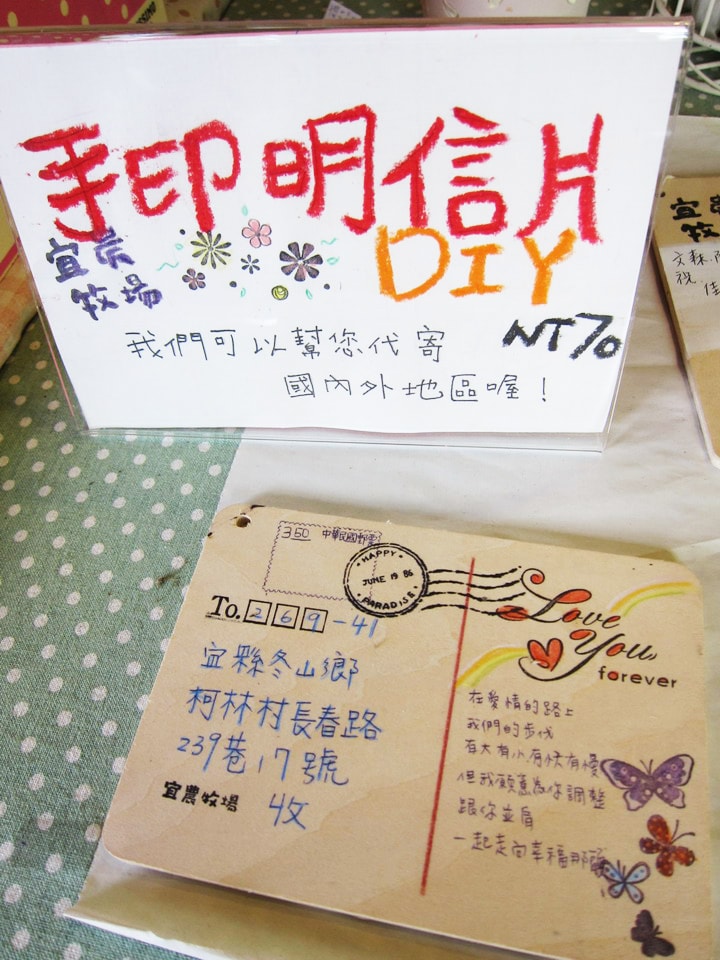 手印明信片
DIY
宜農
牧場
NT70
我們可以幫您代寄
國內外地區喔！
宜
牧
文森
祝
佳
350 中華民國郵票
HAPPY
JUNE 19 86
PARADISE
To. 269-41
宜縣冬山鄉
柯林村長春路
239巷17號
宜農牧場 收
Love
You
forever
在愛情的路上
我們的步伐
有大有小,有快有慢
但我願意為你調整
跟你並肩
一起走向幸福那